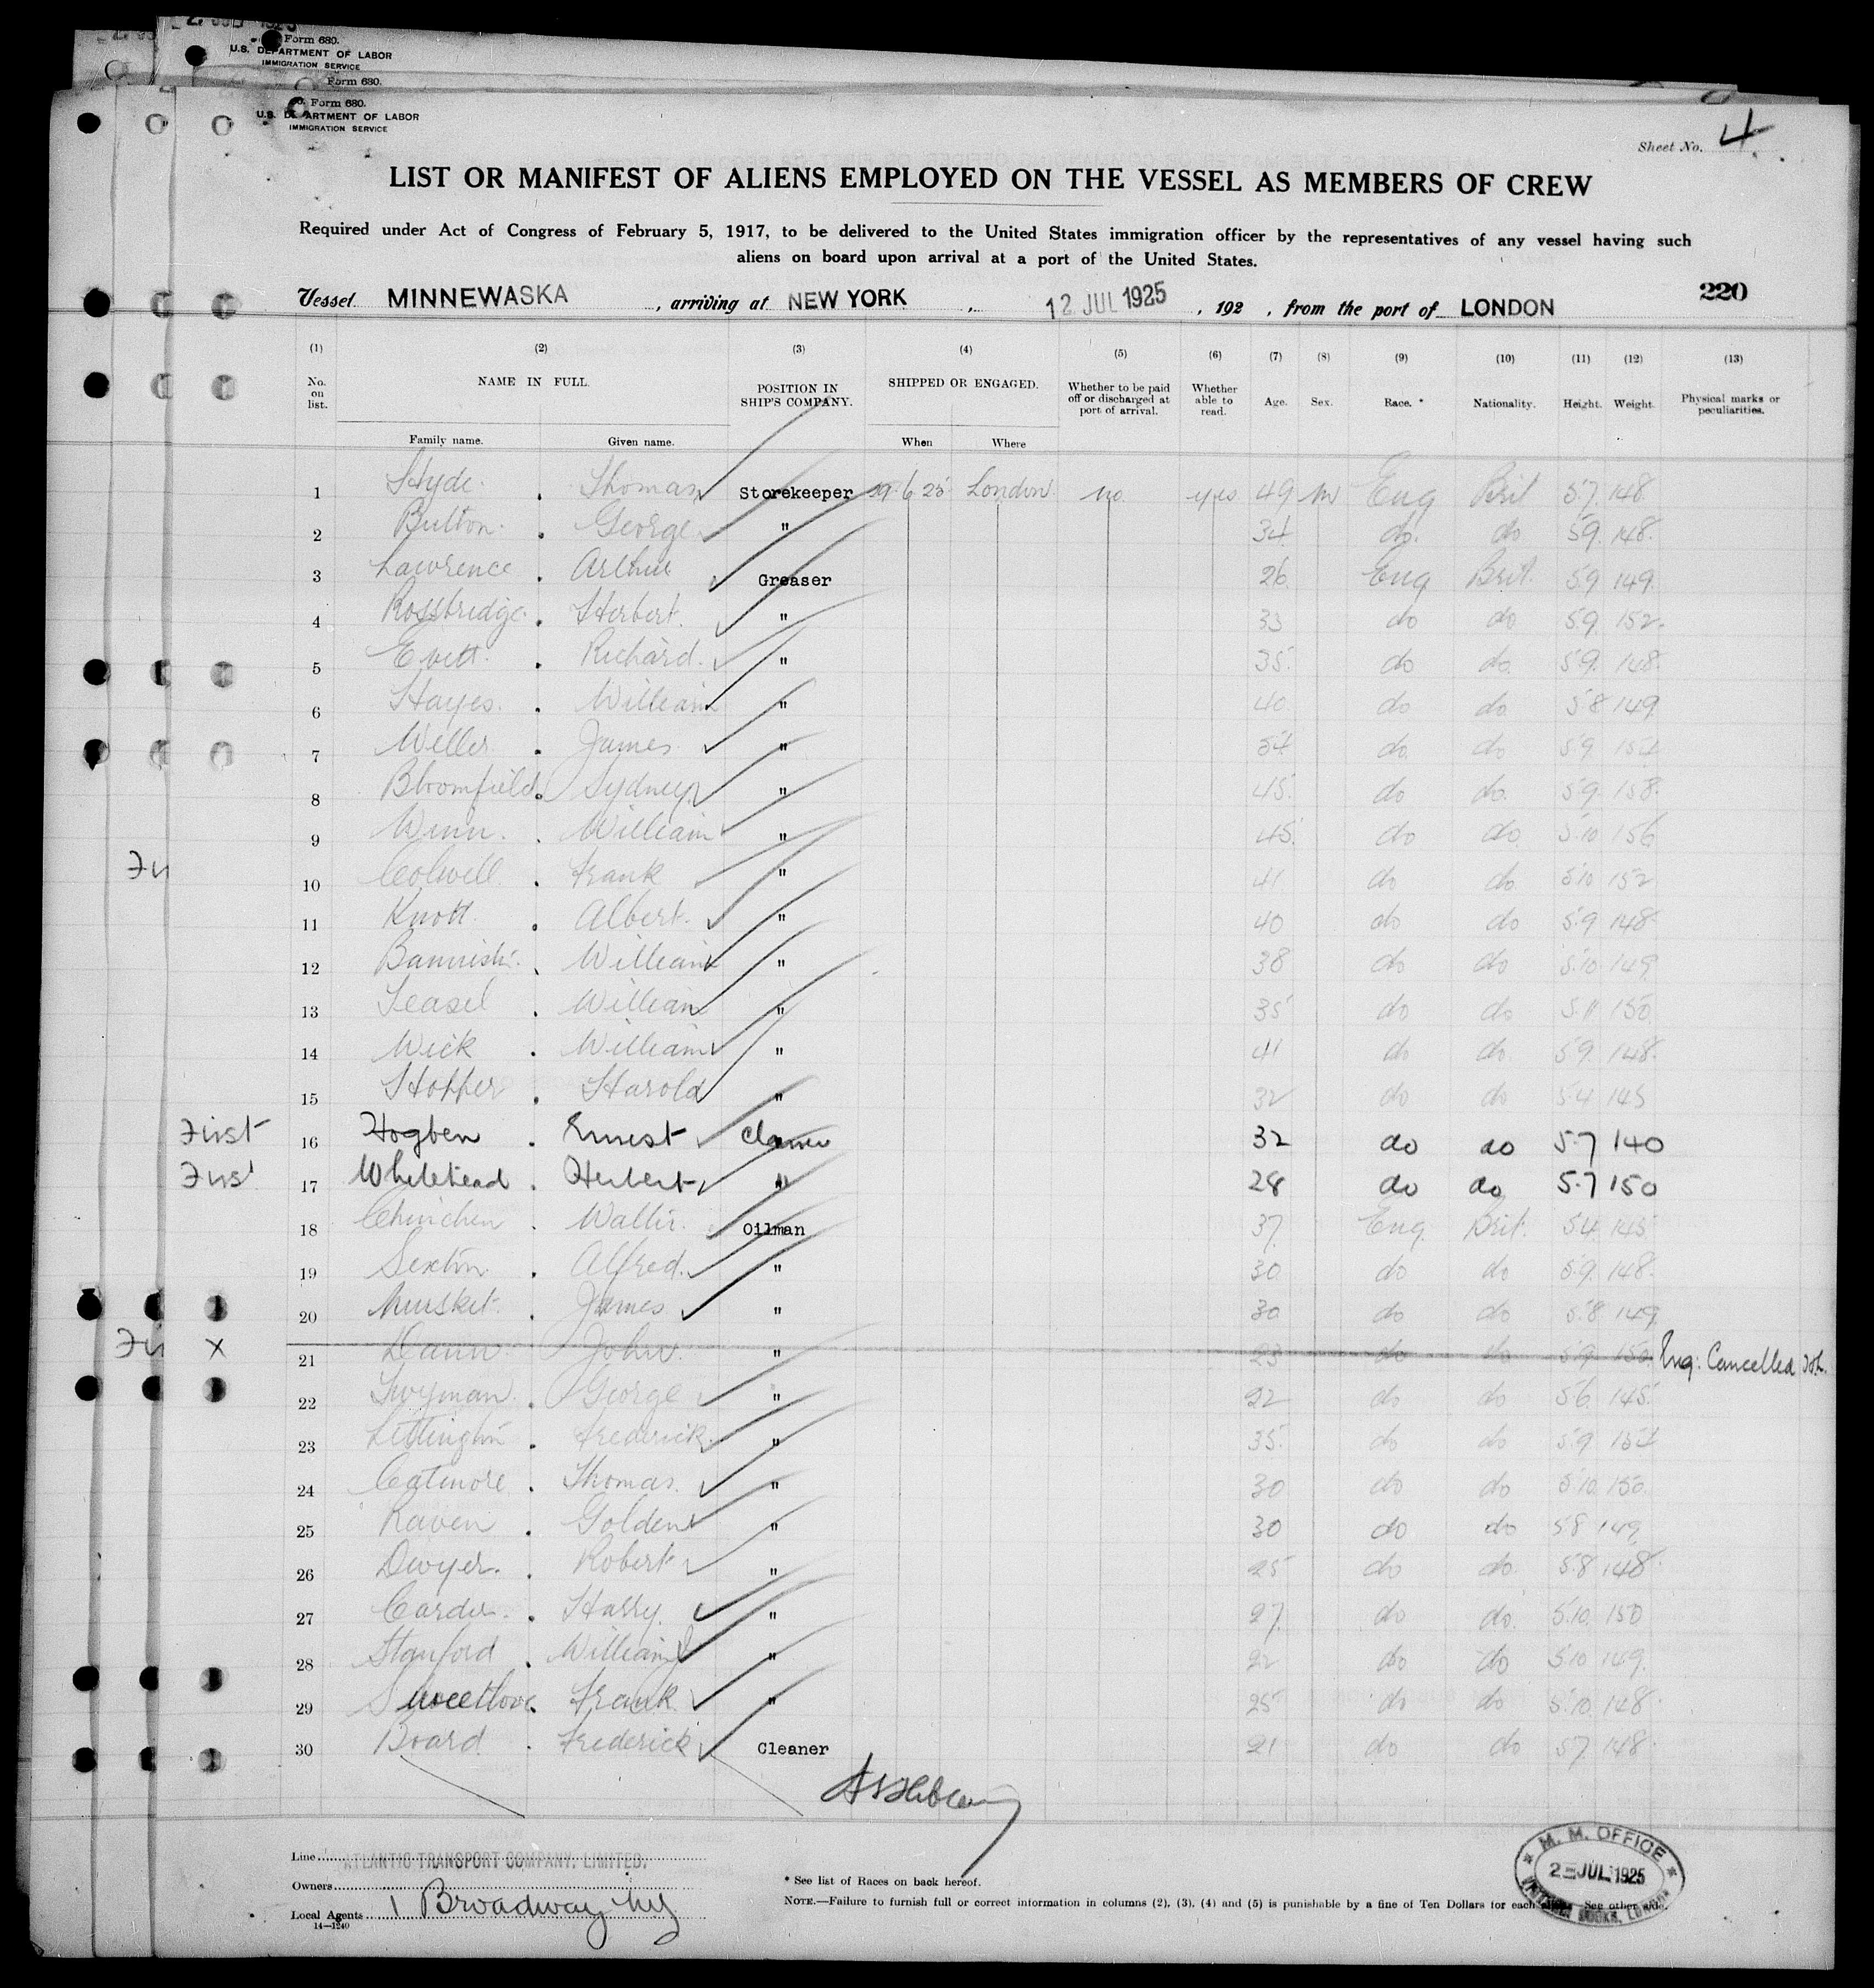 Form 680.
U.S. DEPARTMENT OF LABOR
IMMIGRATION SERVICE
Form 680.
Form 680.
U.S. DEPARTMENT OF LABOR
IMMIGRATION SERVICE
Sheet No. 4
LIST OR MANIFEST OF ALIENS EMPLOYED ON THE VESSEL AS MEMBERS OF CREW
Required under Act of Congress of February 5, 1917, to be delivered to the United States immigration officer by the representatives of any vessel having such
aliens on board upon arrival at a port of the United States.
220
Vessel MINNEWASKA, arriving at NEW YORK, 12 JUL 1925, 192 , from the port of LONDON
(1) (2) (3) (4) (5) (6) (7) (8) (9) (10) (11) (12) (13)
No. on list. NAME IN FULL. POSITION IN SHIP'S COMPANY. SHIPPED OR ENGAGED. Whether to be paid off or discharged at port of arrival. Whether able to read. Age. Sex. Race. * Nationality. Height. Weight. Physical marks or peculiarities.
Family name. Given name. When Where
1 Hyde Thomas Storekeeper 29 6 25 London no yes 49 M Eng Brit 5.7 148
2 Button George " 34 do do 5.9 148
3 Lawrence Arthur Greaser 26 Eng Brit. 5.9 149
4 Rossbridge Herbert " 33 do do 5.9 152
5 Evett Richard " 35 do do 5.9 148
6 Hayes William " 40 do do 5.8 149
7 Weller James " 54 do do 5.9 154
8 Bloomfield Sydney " 45 do do 5.9 158
9 Winn William " 45 do do 5.10 156
10 Colwell Frank " 41 do do 5.10 152
11 Knott Albert " 40 do do 5.9 148
12 Bannister William " 38 do do 5.10 149
13 Teasel William " 35 do do 5.11 150
14 Wick William " 41 do do 5.9 148
15 Hopper Harold " 32 do do 5.4 145
First 16 Hogben Ernest Cleaner 32 do do 5.7 140
First 17 Whitehead Herbert " 28 do do 5.7 150
18 Chinchen Walter Oilman 37 Eng Brit. 5.4 145
19 Sexton Alfred " 30 do do 5.9 148
20 Musket James " 30 do do 5.8 149
X 21 Dann John " 23 do do 5.9 150 Eng: Cancelled
22 Twyman George " 22 do do 5.6 145
23 Lettington Frederick " 35 do do 5.9 154
24 Catmore Thomas " 30 do do 5.10 150
25 Raven Golden " 30 do do 5.8 149
26 Dwyer Robert " 25 do do 5.8 148
27 Carder Harry " 27 do do 5.10 150
28 Stanford William " 22 do do 5.10 149
29 Sweetlove Frank " 25 do do 5.10 148
30 Board Frederick Cleaner 21 do do 5.7 148
Line ATLANTIC TRANSPORT COMPANY, LIMITED.
Owners
Local Agents 1 Broadway NY
14—1240
* See list of Races on back hereof.
NOTE.—Failure to furnish full or correct information in columns (2), (3), (4) and (5) is punishable by a fine of Ten Dollars for each alien. See other side.
M. M. OFFICE
2 - JUL 1925
DOCKS, LONDON